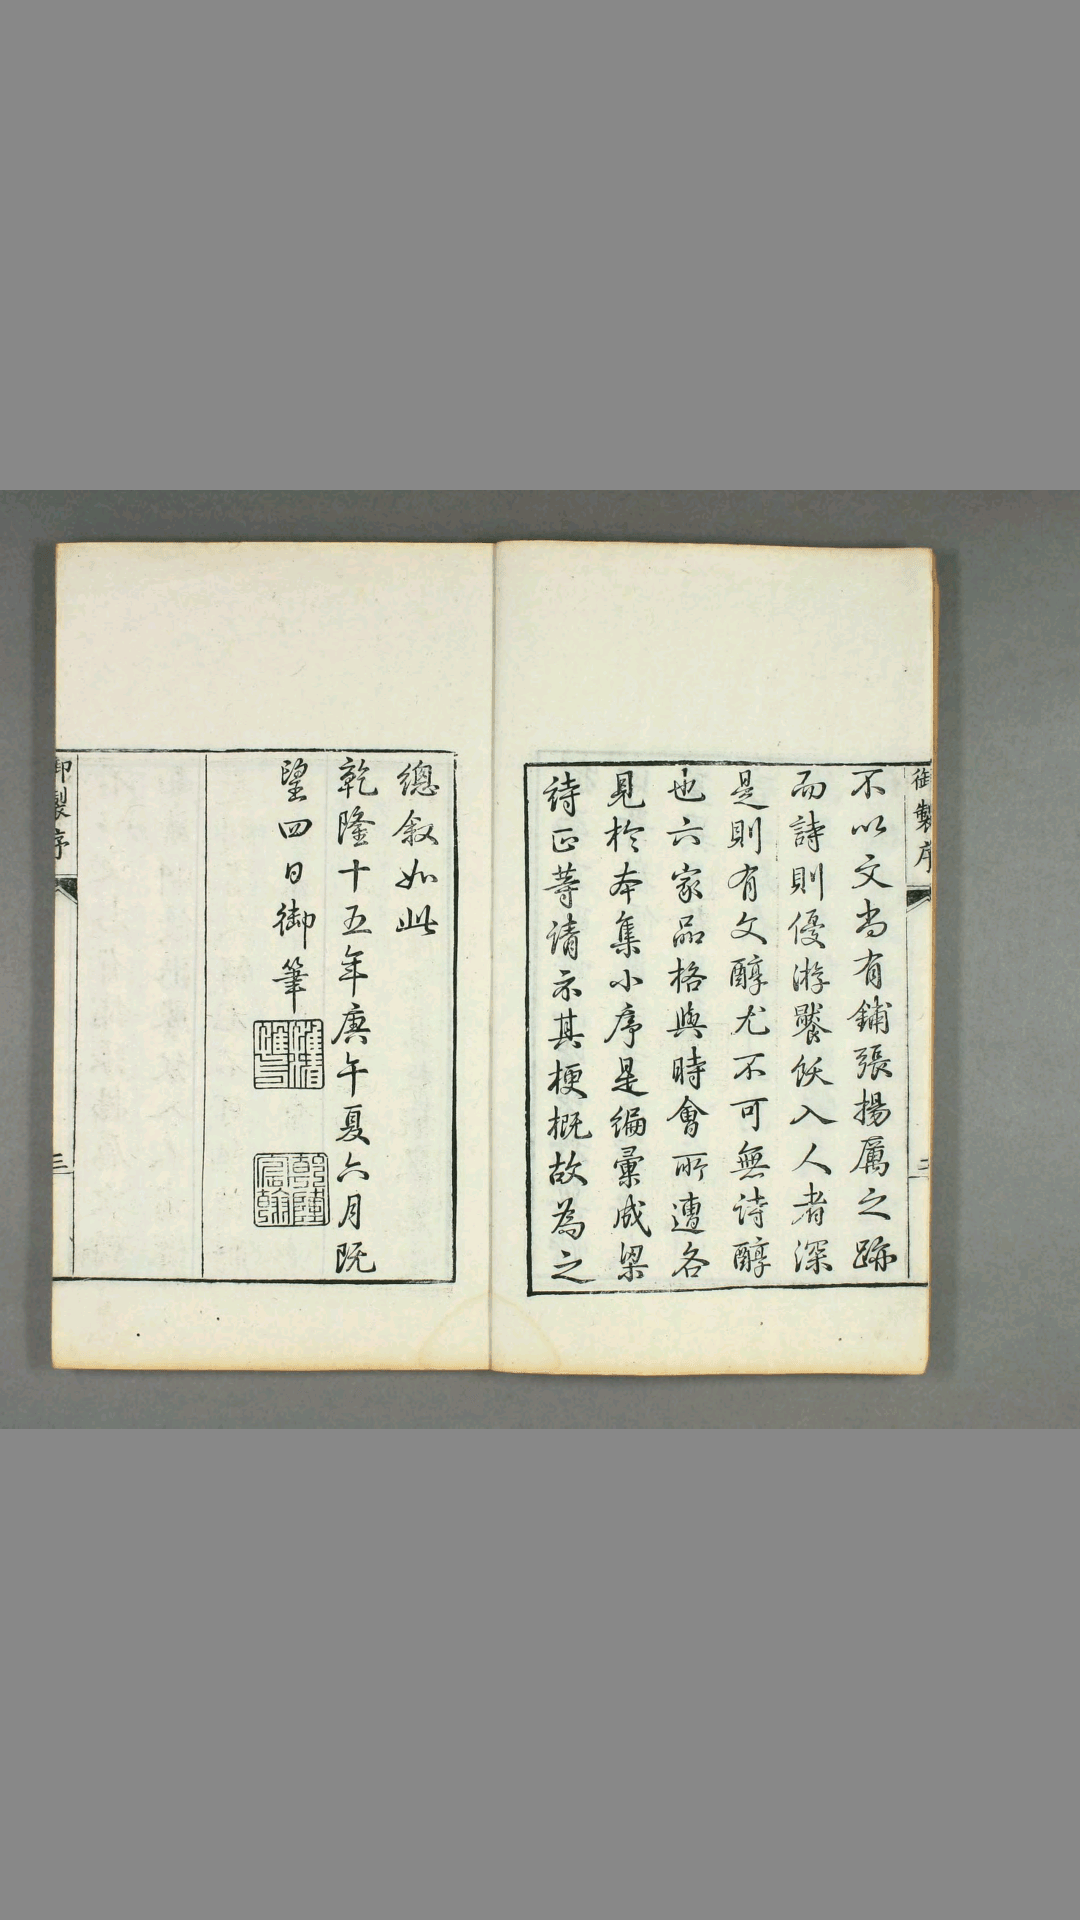 御製序
不以文尚有鋪張揚厲之跡
而詩則優游饜飫入人者深
是則有文醇尤不可無詩醇
也六家品格與時會所遭各
見於本集小序是編彙成梁
詩正等請示其梗概故為之
總敘如此
乾隆十五年庚午夏六月既
望四日御筆
惟精惟一
乾隆宸翰
御製序
三